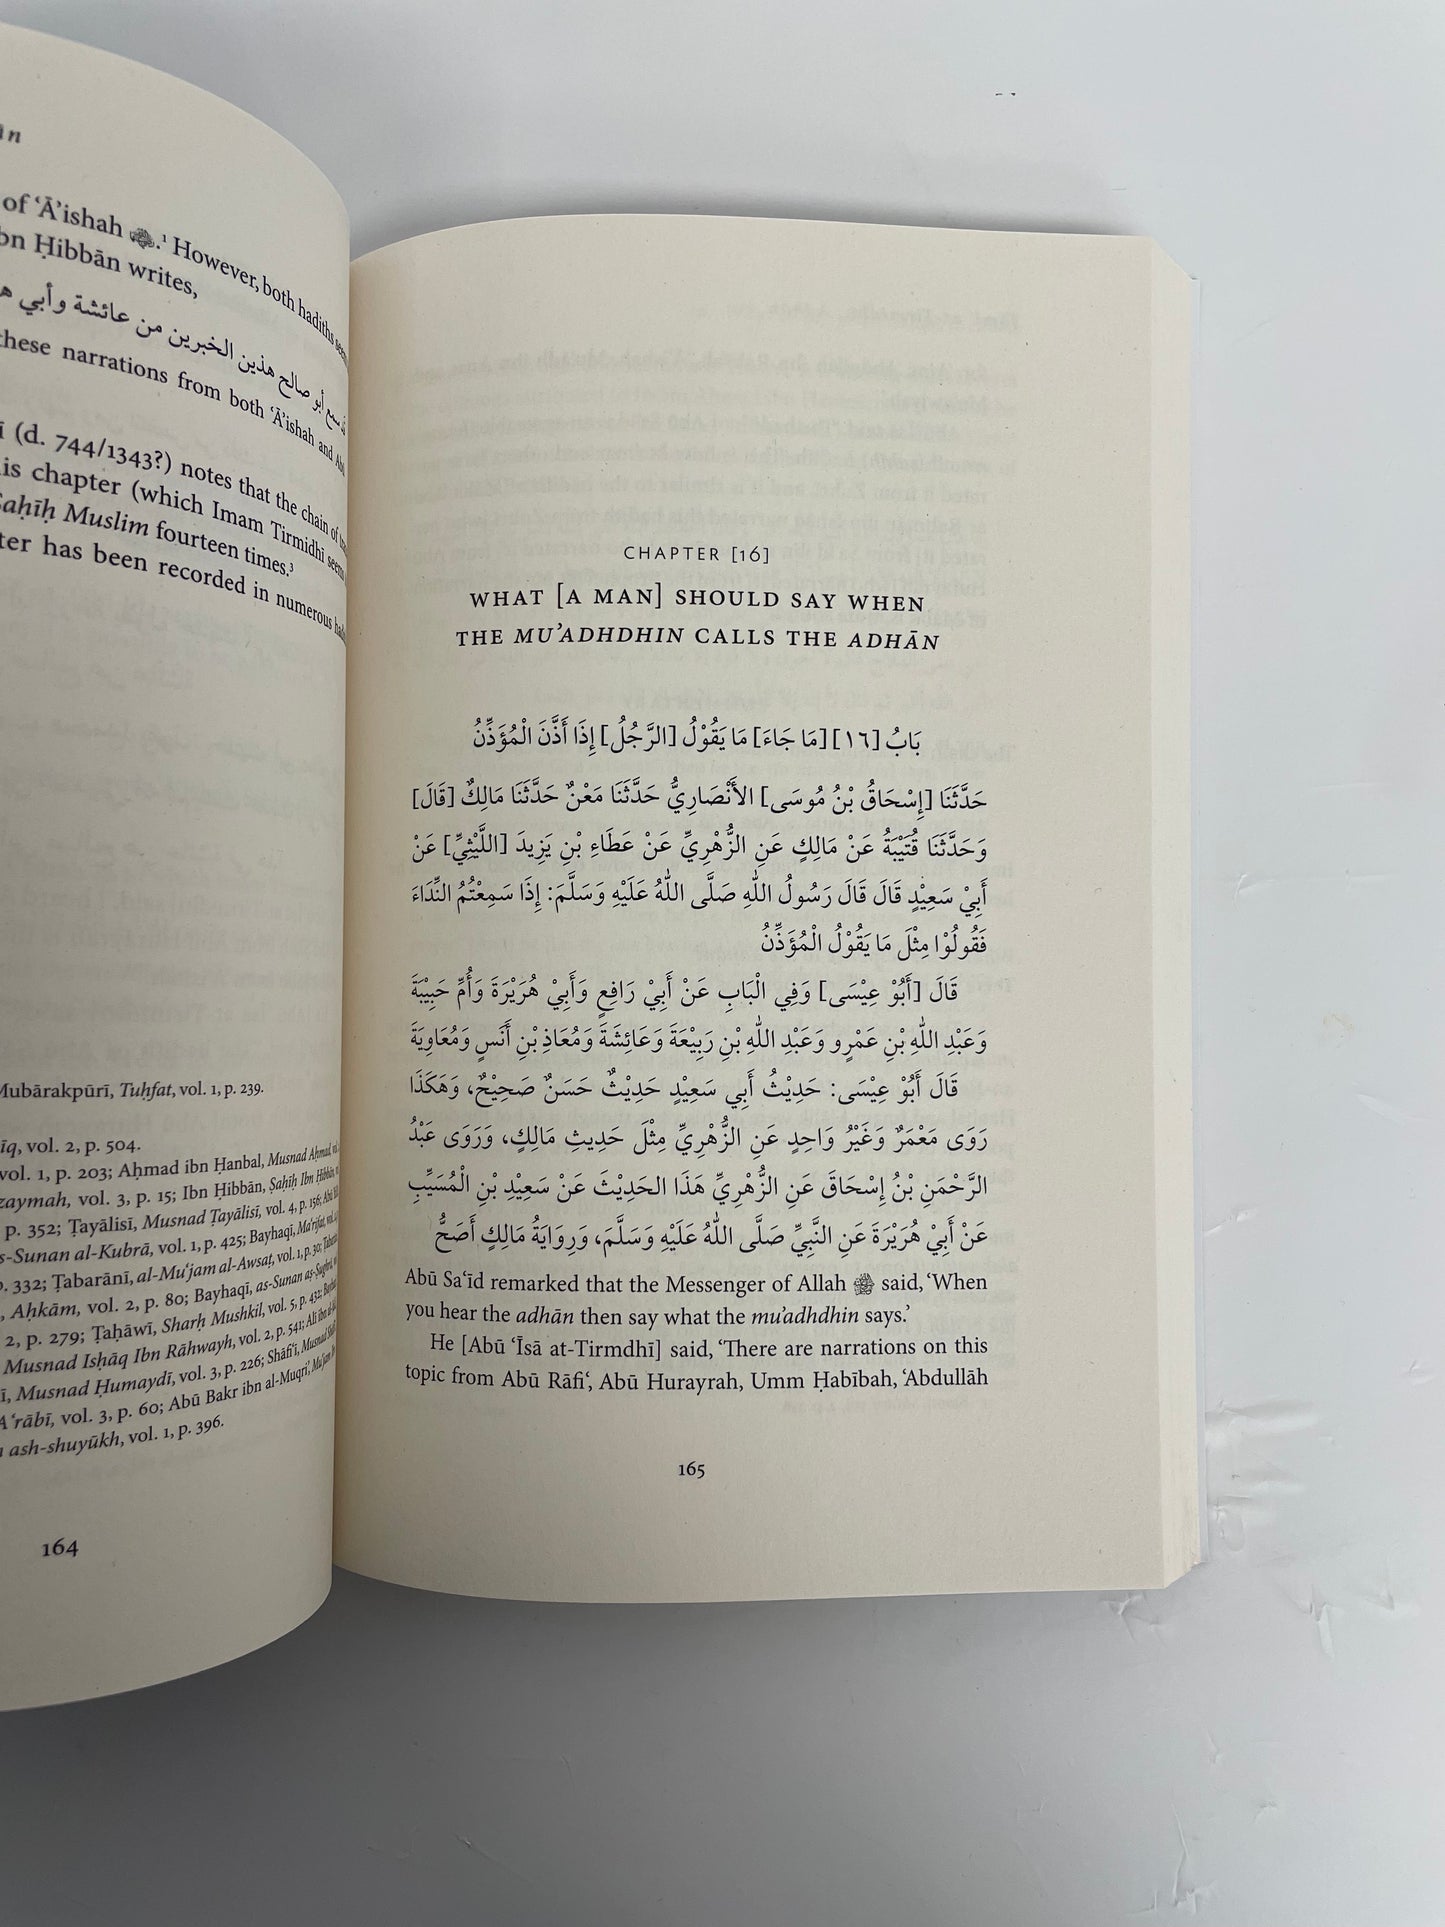 ān
of ʿĀ’ishah .¹ However, both hadiths
bn Ḥibbān writes,
سمع أبو صالح هذين الخبرين من عائشة وأبي
these narrations from both ʿĀ’ishah and
ī (d. 744/1343?) notes that the chain of
is chapter (which Imam Tirmidhī
Ṣaḥīḥ Muslim fourteen times.³
ter has been recorded in numerous
Mubārakpūrī, Tuḥfat, vol. 1, p. 239.
īq, vol. 2, p. 504.
vol. 1, p. 203; Aḥmad ibn Ḥanbal, Musnad Aḥmad,
zaymah, vol. 3, p. 15; Ibn Ḥibbān, Ṣaḥīḥ Ibn Ḥibbān,
p. 352; Ṭayālisī, Musnad Ṭayālisī, vol. 4, p. 156;
s-Sunan al-Kubrā, vol. 1, p. 425; Bayhaqī, Maʿrifat,
p. 332; Ṭabarānī, al-Muʿjam al-Awsaṭ, vol. 1, p. 30;
, Aḥkām, vol. 2, p. 80; Bayhaqī, as-Sunan aṣ-Ṣughrā,
2, p. 279; Ṭaḥāwī, Sharḥ Mushkil, vol. 5, p. 432;
Musnad Isḥāq Ibn Rāhwayh, vol. 2, p. 541;
ī, Musnad Ḥumaydī, vol. 3, p. 226; Shāfiʿī, Musnad
Aʿrābī, vol. 3, p. 60; Abū Bakr ibn al-Muqrī,
ash-shuyūkh, vol. 1, p. 396.
164
CHAPTER [16]
WHAT [A MAN] SHOULD SAY WHEN
THE MU’ADHDHIN CALLS THE ADHĀN
بَابُ [١٦] [مَا جَاءَ] مَا يَقُوْلُ [الرَّجُلُ] إِذَا أَذَّنَ الْمُؤَذِّنُ
حَدَّثَنَا [إِسْحَاقُ بْنُ مُوسَى] الأَنْصَارِيُّ حَدَّثَنَا مَعْنٌ حَدَّثَنَا مَالِكٌ [قَالَ]
وَحَدَّثَنَا قُتَيْبَةُ عَنْ مَالِكٍ عَنِ الزُّهْرِيِّ عَنْ عَطَاءِ بْنِ يَزِيدَ [اللَّيْثِيِّ] عَنْ
أَبِيْ سَعِيْدٍ قَالَ قَالَ رَسُولُ اللهِ صَلَّى اللهُ عَلَيْهِ وَسَلَّمَ: إِذَا سَمِعْتُمُ النِّدَاءَ
فَقُولُوْا مِثْلَ مَا يَقُوْلُ الْمُؤَذِّنُ
قَالَ [أَبُوْ عِيْسَى] وَفِي الْبَابِ عَنْ أَبِيْ رَافِعٍ وَأَبِيْ هُرَيْرَةَ وَأُمِّ حَبِيْبَةَ
وَعَبْدِ اللهِ بْنِ عَمْرٍو وَعَبْدِ اللهِ بْنِ رَبِيْعَةَ وَعَائِشَةَ وَمُعَاذِ بْنِ أَنَسٍ وَمُعَاوِيَةَ
قَالَ أَبُوْ عِيْسَى: حَدِيْثُ أَبِي سَعِيْدٍ حَدِيْثٌ حَسَنٌ صَحِيْحٌ، وَهَكَذَا
رَوَى مَعْمَرٌ وَغَيْرُ وَاحِدٍ عَنِ الزُّهْرِيِّ مِثْلَ حَدِيثِ مَالِكٍ، وَرَوَى عَبْدُ
الرَّحْمَنِ بْنُ إِسْحَاقَ عَنِ الزُّهْرِيِّ هَذَا الحَدِيْثَ عَنْ سَعِيْدِ بْنِ الْمُسَيِّبِ
عَنْ أَبِيْ هُرَيْرَةَ عَنِ النَّبِيِّ صَلَّى اللهُ عَلَيْهِ وَسَلَّمَ، وَرِوَايَةُ مَالِكٍ أَصَحُّ
Abū Saʿīd remarked that the Messenger of Allah ﷺ said, ‘When
you hear the adhān then say what the mu’adhdhin says.’
He [Abū ʿĪsā at-Tirmdhī] said, ‘There are narrations on this
topic from Abū Rāfiʿ, Abū Hurayrah, Umm Ḥabībah, ʿAbdullāh
165